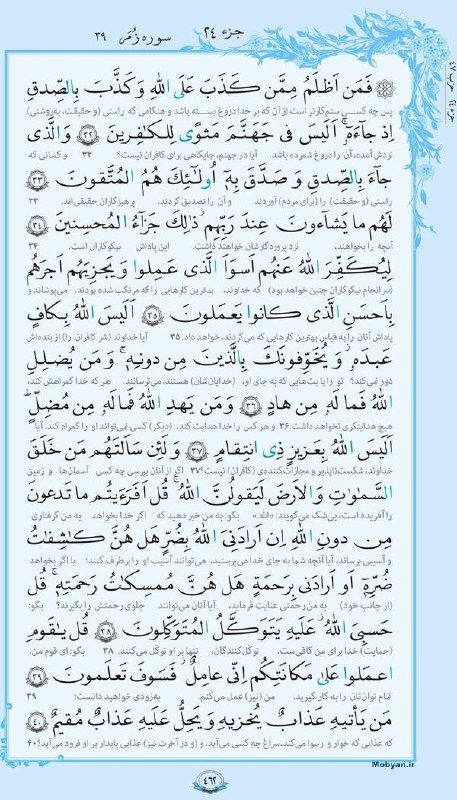 جزء ۲۴
سوره زُمَر ۳۹
حزب ۴۷
جزء ۲۴
فَمَن اَظلَمُ مِمَّن كَذَبَ عَلَى اللهِ وَ كَذَّبَ بِالصِّدقِ
پس چه کسی ستم‌کارتر است از آن که بر خدا دروغ بسته باشد و هنگامی که راستی (و حقیقت، به‌روشنی)
اِذ جاءَهُ اَلَيسَ فی جَهَنَّمَ مَثوًی لِلكٰفِرينَ ﴿۳۲﴾ وَ الَّذی
نزدش آمده، آن را دروغ شمرده باشد. آیا در جهنم، جایگاهی برای کافران نیست؟ ۳۲ و کسانی که
جاءَ بِالصِّدقِ وَ صَدَّقَ بِهٖ اُولٰئِكَ هُمُ المُتَّقونَ ﴿۳۳﴾
راستی (و حقیقت) را (برای مردم) آوردند و آن را تصدیق کردند، پرهیزگاران حقیقی‌اند. ۳۳
لَهُم ما يَشاءونَ عِندَ رَبِّهِم ذٰلِكَ جَزاءُ المُحسِنينَ ﴿۳۴﴾
آنچه را بخواهند، نزد پروردگارشان خواهند داشت. این پاداش نیکوکاران است. ۳۴
لِيُكَفِّرَ اللهُ عَنهُم اَسوَاَ الَّذی عَمِلوا وَ يَجزِيَهُم اَجرَهُم
(سرانجام نیکوکاران چنین خواهد بود) که خداوند، بدترین کارهایی را که مرتکب شده بودند، می‌پوشاند و
بِاَحسَنِ الَّذی كانوا يَعمَلونَ ﴿۳۵﴾ اَلَيسَ اللهُ بِكافٍ
پاداش آنان را به قیاس بهترین کارهایی که می‌کردند، خواهد داد. ۳۵ آیا خداوند (شر کافران را) از بنده‌اش
عَبدَهُ وَ يُخَوِّفونَكَ بِالَّذينَ مِن دونِهٖ وَ مَن يُضلِلِ
دور نمی‌کند؟ تو را با بت‌هایی که به جای او، (خدایان‌شان) هستند، می‌ترسانند. هر که خدا گمراهش کند،
اللهُ فَما لَهُ مِن هادٍ ﴿۳۶﴾ وَ مَن يَهدِ اللهُ فَما لَهُ مِن مُضِلٍّ
هیچ هدایتگری نخواهد داشت. ۳۶ و هر کس را خدا هدایت کند، (دیگر) کسی نمی‌تواند او را گمراه کند. آیا
اَلَيسَ اللهُ بِعَزيزٍ ذِی انتِقامٍ ﴿۳۷﴾ وَ لَئِن سَاَلتَهُم مَن خَلَقَ
خداوند، شکست‌ناپذیر و مجازات‌کننده‌ی (کافران) نیست؟ ۳۷ اگر از آنان بپرسی چه کسی آسمان‌ها و زمین
السَّمٰوٰتِ وَ الاَرضَ لَيَقولُنَّ اللهُ قُل اَفَرَءَيتُم ما تَدعونَ
را آفریده است، بی‌شک می‌گویند: «الله.» بگو: به من خبر دهید که اگر خدا بخواهد به من گرفتاری
مِن دونِ اللهِ اِن اَرادَنِیَ اللهُ بِضُرٍّ هَل هُنَّ كاشِفٰتُ
و آسیبی برساند، آیا آنچه شما به جای خدا می‌پرستید، می‌توانند آسیب او را برطرف کنند؛ یا اگر بخواهد
ضُرِّهٖ اَو اَرادَنی بِرَحمَةٍ هَل هُنَّ مُمسِكٰتُ رَحمَتِهٖ قُل
(از جانب خود) به من رحمتی عنایت فرماید، آیا آنان می‌توانند جلوی رحمتش را بگیرند؟ بگو:
حَسبِیَ اللهُ عَلَيهِ يَتَوَكَّلُ المُتَوَكِّلونَ ﴿۳۸﴾ قُل يٰقَومِ
(حمایت) خدا برای من کافی‌ست. توکّل‌کنندگان، تنها بر او توکّل می‌کنند. ۳۸ بگو: ای قوم من،
اعمَلوا عَلیٰ مَكانَتِكُم اِنّی عامِلٌ فَسَوفَ تَعلَمونَ ﴿۳۹﴾
تمام توان‌تان را به کار گیرید. من (نیز) عمل می‌کنم. به‌زودی خواهید دانست؛ ۳۹
مَن يَأتيهِ عَذابٌ يُخزيهِ وَ يَحِلُّ عَلَيهِ عَذابٌ مُقيمٌ ﴿۴۰﴾
که عذابی که خوار و رسوا می‌کند، سراغ چه کسی می‌آید، و (و در آخرت نیز) عذابی پایدار بر او فرود می‌آید؟ ۴۰
۴۶۲
Mobyan.ir